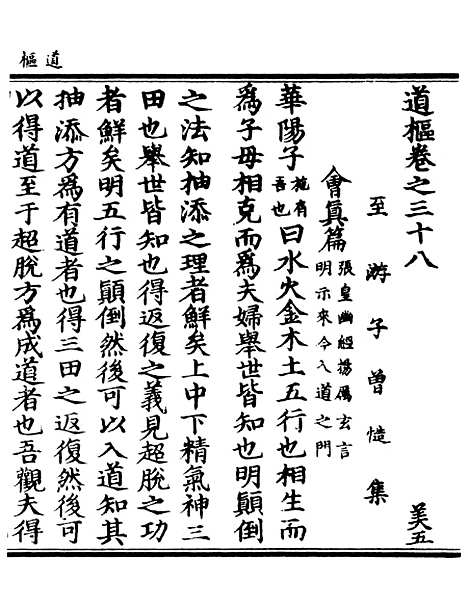 道樞
道樞卷之三十八 美五
至游子曾慥集
會真篇 張皇幽經揚厲玄言
明示來今入道之門
華陽子 施肩
吾也 曰水火金木土五行也相生而
爲子母相克而爲夫婦舉世皆知也明顛倒
之法知抽添之理者鮮矣上中下精氣神三
田也舉世皆知也得返復之義見超脫之功
者鮮矣明五行之顛倒然後可以入道知其
抽添方爲有道者也得三田之返復然後可
以得道至于超脫方爲成道者也吾觀夫得